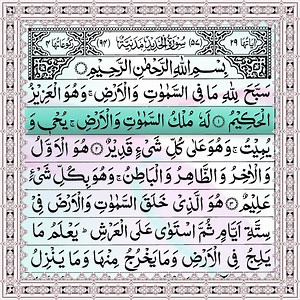 اٰیَاتُهَا ٢٩ (٥٧) سُوْرَةُ الْحَدِیْدِ مَدَنِیَّةٌ (٩٤) رُكُوْعَاتُهَا ٤
بِسْمِ اللّٰهِ الرَّحْمٰنِ الرَّحِیْمِ
سَبَّحَ لِلّٰهِ مَا فِی السَّمٰوٰتِ وَالْاَرْضِ ۚ وَهُوَ الْعَزِیْزُ
الْحَكِیْمُ ۝ لَهٗ مُلْكُ السَّمٰوٰتِ وَالْاَرْضِ ۚ یُحْیٖ وَ
یُمِیْتُ ۚ وَهُوَ عَلٰی كُلِّ شَیْءٍ قَدِیْرٌ ۝ هُوَ الْاَوَّلُ
وَالْاٰخِرُ وَالظَّاهِرُ وَالْبَاطِنُ ۚ وَهُوَ بِكُلِّ شَیْءٍ
عَلِیْمٌ ۝ هُوَ الَّذِیْ خَلَقَ السَّمٰوٰتِ وَالْاَرْضَ فِیْ
سِتَّةِ اَیَّامٍ ثُمَّ اسْتَوٰی عَلَی الْعَرْشِ ؕ یَعْلَمُ مَا
یَلِجُ فِی الْاَرْضِ وَمَا یَخْرُجُ مِنْهَا وَمَا یَنْزِلُ